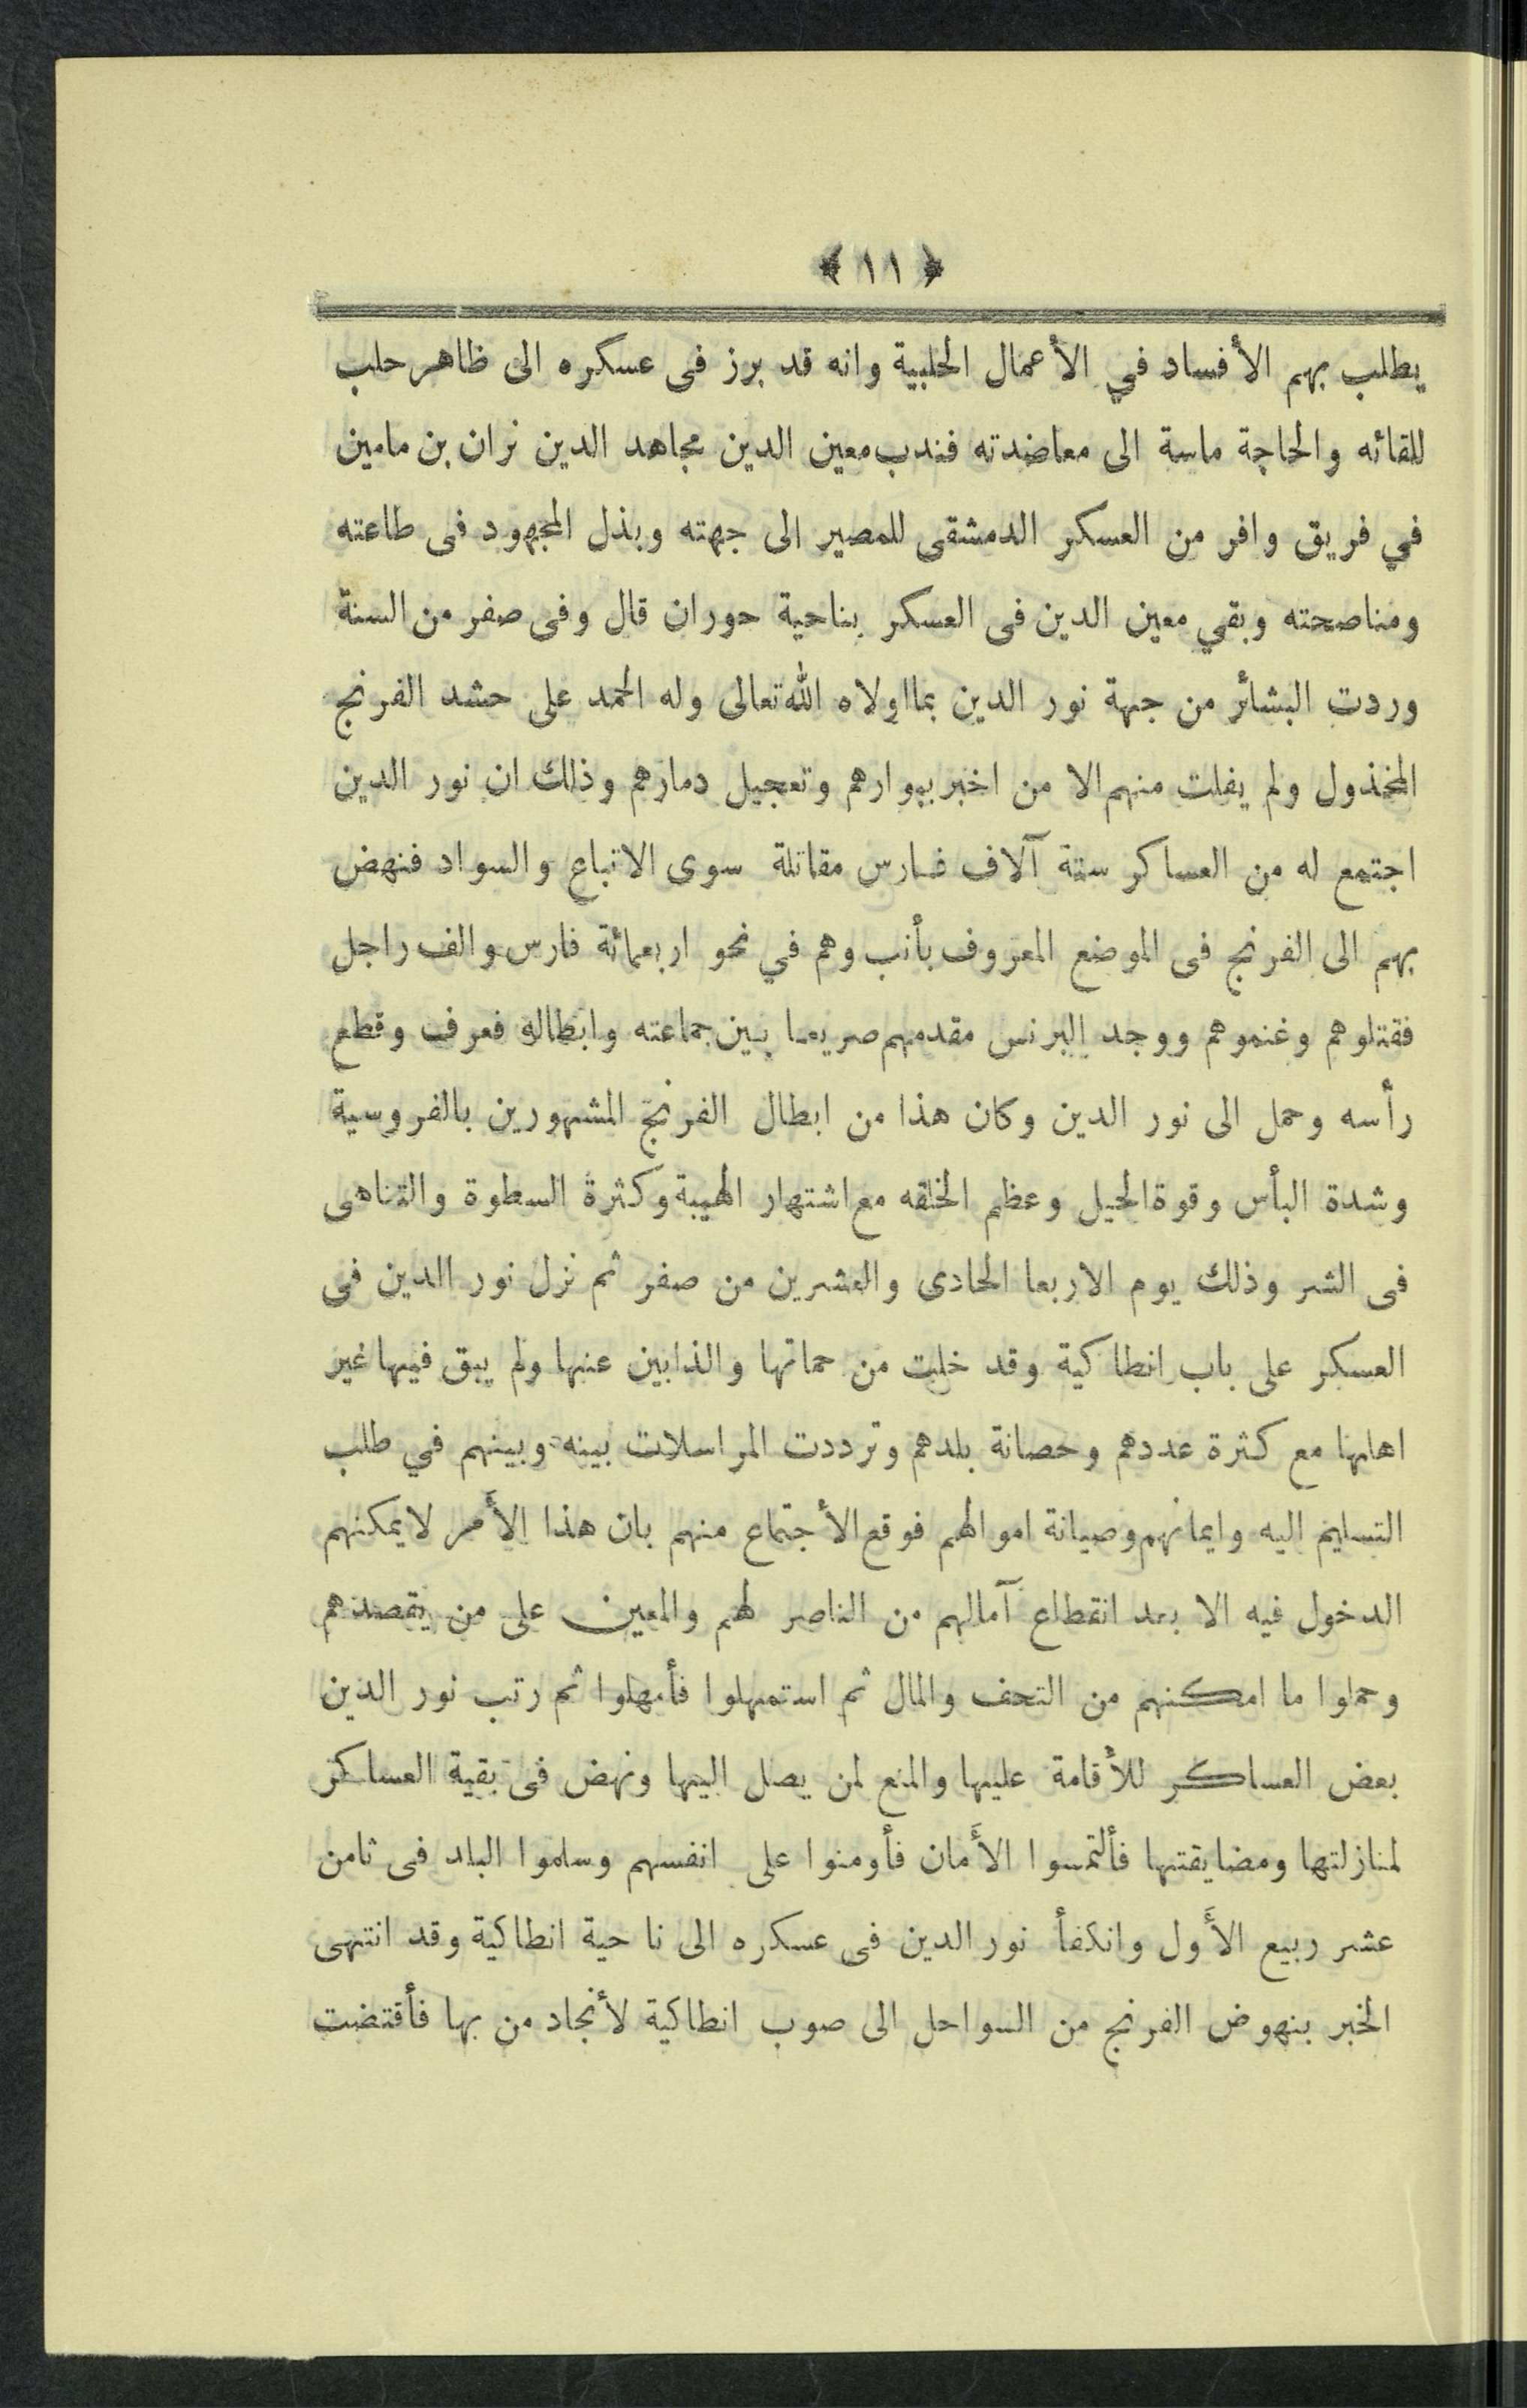 ﴿ ١١ ﴾
يطلب بهم الأفساد في الأعمال الحلبية وانه قد برز فى عسكره الى ظاهر حلب
للقائه والحاجة ماسة الى معاضدته فندب معين الدين مجاهد الدين نران بن مامين
في فريق وافر من العسكر الدمشقى للمصير الى جهته وبذل المجهود فى طاعته
ومناصحته وبقي معين الدين فى العسكر بناحية حوران قال وفى صفر من السنة
وردت البشائر من جهة نور الدين بما اولاه الله تعالى وله الحمد على حشد الفرنج
المخذول ولم يفلت منهم الا من اخبر ببوارهم وتعجيل دمارهم وذلك ان نور الدين
اجتمع له من العساكر ستة آلاف فارس مقاتلة سوى الاتباع والسواد فنهض
بهم الى الفرنج فى الموضع المعروف بأنب وهم في نحو اربعمائة فارس والف راجل
فقتلوهم وغنموهم ووجد البرنس مقدمهم صريعا بين جماعته وابطاله فعرف وقطع
رأسه وحمل الى نور الدين وكان هذا من ابطال الفرنج المشهورين بالفروسية
وشدة البأس وقوة الحيل وعظم الخلقه مع اشتهار الهيبة وكثرة السطوة والتناهى
فى الشر وذلك يوم الاربعا الحادى والعشرين من صفر ثم نزل نور الدين فى
العسكر على باب انطاكية وقد خلت من حماتها والذابين عنها ولم يبق فيها غير
اهلها مع كثرة عددهم وحصانة بلدهم وترددت المراسلات بينه وبينهم في طلب
التسليم اليه وايمانهم وصيانة اموالهم فوقع الأجتماع منهم بان هذا الأمر لايمكنهم
الدخول فيه الا بعد انقطاع آمالهم من الناصر لهم والمعين على من يقصدهم
وحملوا ما امكنهم من التحف والمال ثم استمهلوا فأمهلوا ثم رتب نور الدين
بعض العساكر للأقامة عليها والمنع لمن يصل اليها ونهض فى بقية العساكر
لمنازلتها ومضايقتها فألتمسوا الأمان فأومنوا على انفسهم وسلموا البلد فى ثامن
عشر ربيع الأول وانكفأ نور الدين فى عسكره الى ناحية انطاكية وقد انتهى
الخبر بنهوض الفرنج من السواحل الى صوب انطاكية لأنجاد من بها فأقتضت